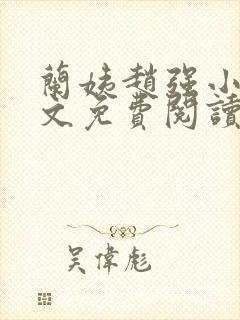 蘭姨趙强小
文免費閱讀
吴偉彪